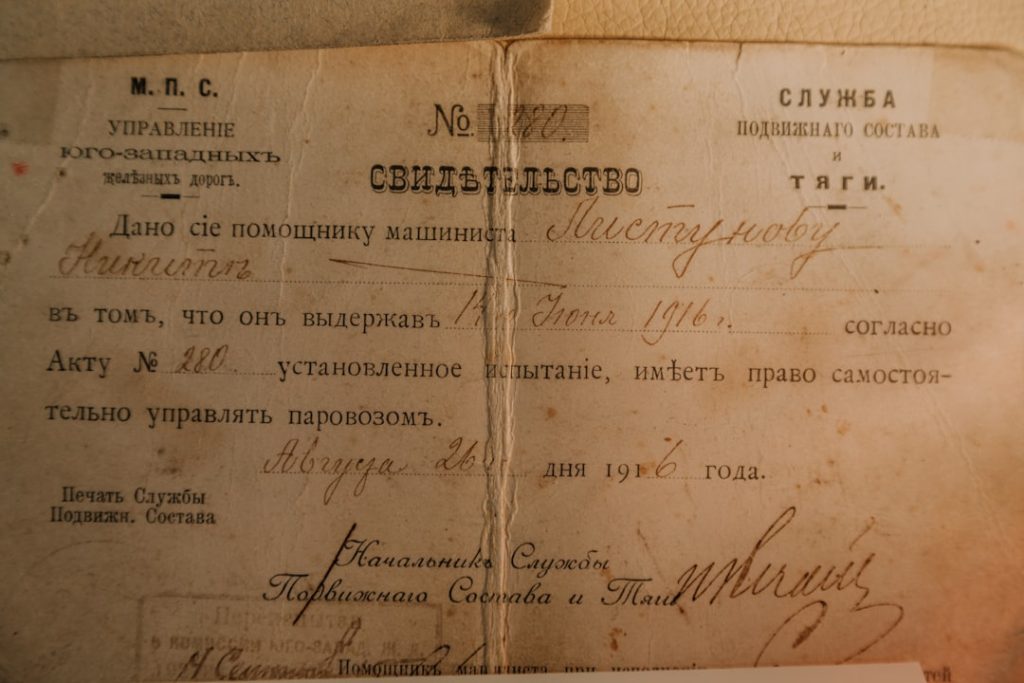 М. П. С.
УПРАВЛЕНІЕ
ЮГО-ЗАПАДНЫХЪ
желѣзныхъ дорогъ.
№ 280.
СЛУЖБА
ПОДВИЖНАГО СОСТАВА
и
ТЯГИ.
СВИДѢТЕЛЬСТВО
Дано сіе помощнику машиниста Пистунову
Никитѣ
въ томъ, что онъ выдержавъ Іюня 1916 г. согласно
Акту № 280. установленное испытаніе, имѣетъ право самостоя-
тельно управлять паровозомъ.
Августа 26 дня 1916 года.
Печать Службы
Подвижн. Состава
Начальникъ Службы
Подвижнаго Состава и Тяги
КОМИССІИ ЮГО-ЗАПАД. Ж. Д.
Помощникъ машиниста при